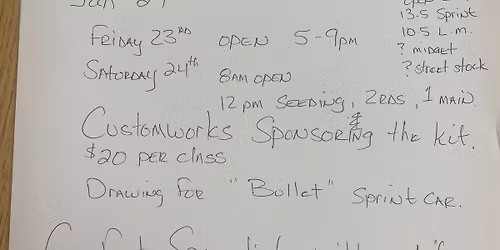 Friday 23RD OPEN 5-9pm
Saturday 24th 8AM OPEN
12 pm SEEDING, 2RDS, 1 MAIN
Customworks Sponsoring & the kit.
$20 PER CLASS
Drawing For "Bullet" Sprint Car.
13.5 Sprint
10.5 L.M.
? midget
? street stock